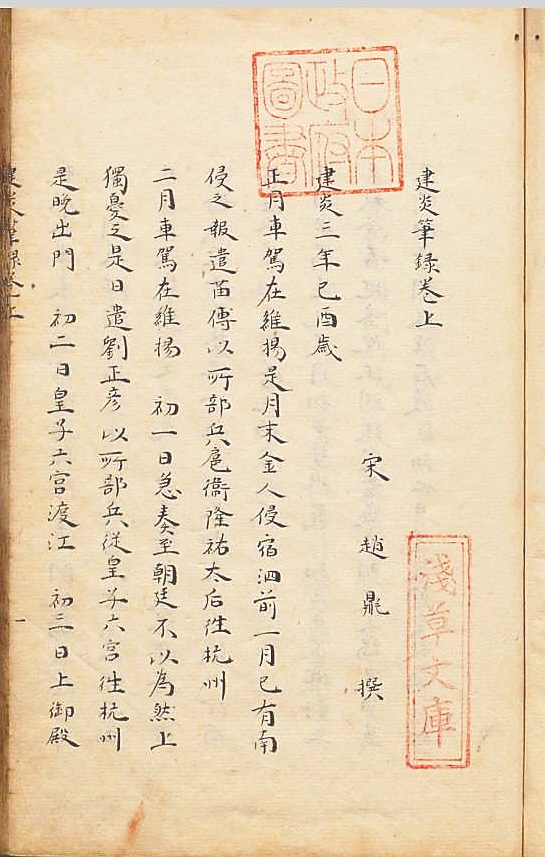 建炎筆録卷上
宋趙鼎撰
建炎三年己酉歲
正月車駕在維揚是月末金人侵宿泗前一月已有南
侵之報遣苗傅以所部兵扈衞隆祐太后往杭州
二月車駕在維揚 初一日急奏至朝廷不以為然上
獨憂之是日遣劉正彦以所部兵従皇子六宮往杭州
是晚出門 初二日皇子六宮渡江 初三日上御殿
建炎筆録卷上
一
日本政府圖書
淺草文庫